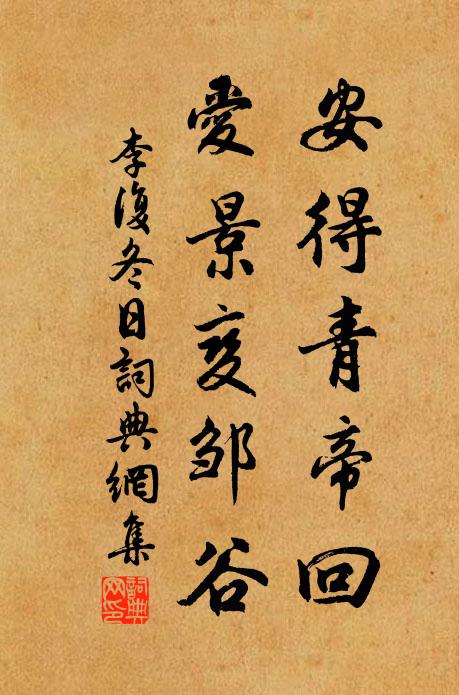 安得青帝回
愛景变邹谷
李復冬日詞典網集
詞典网印